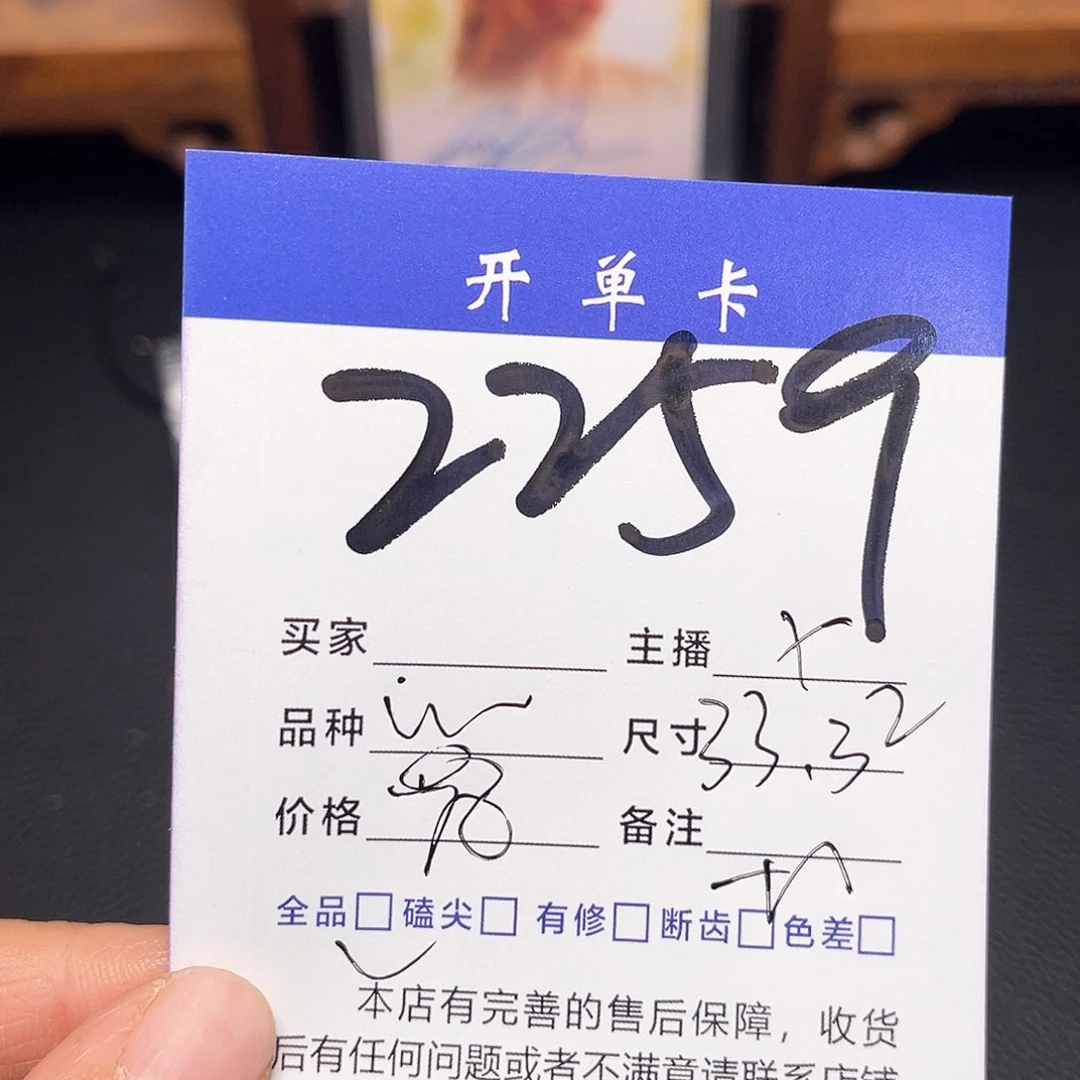 开单卡
2259
买家 主播
品种 尺寸 33.32
价格 98 备注
全品 磕尖 有修 断齿 色差
本店有完善的售后保障，收货
后有任何问题或者不满意请联系店铺